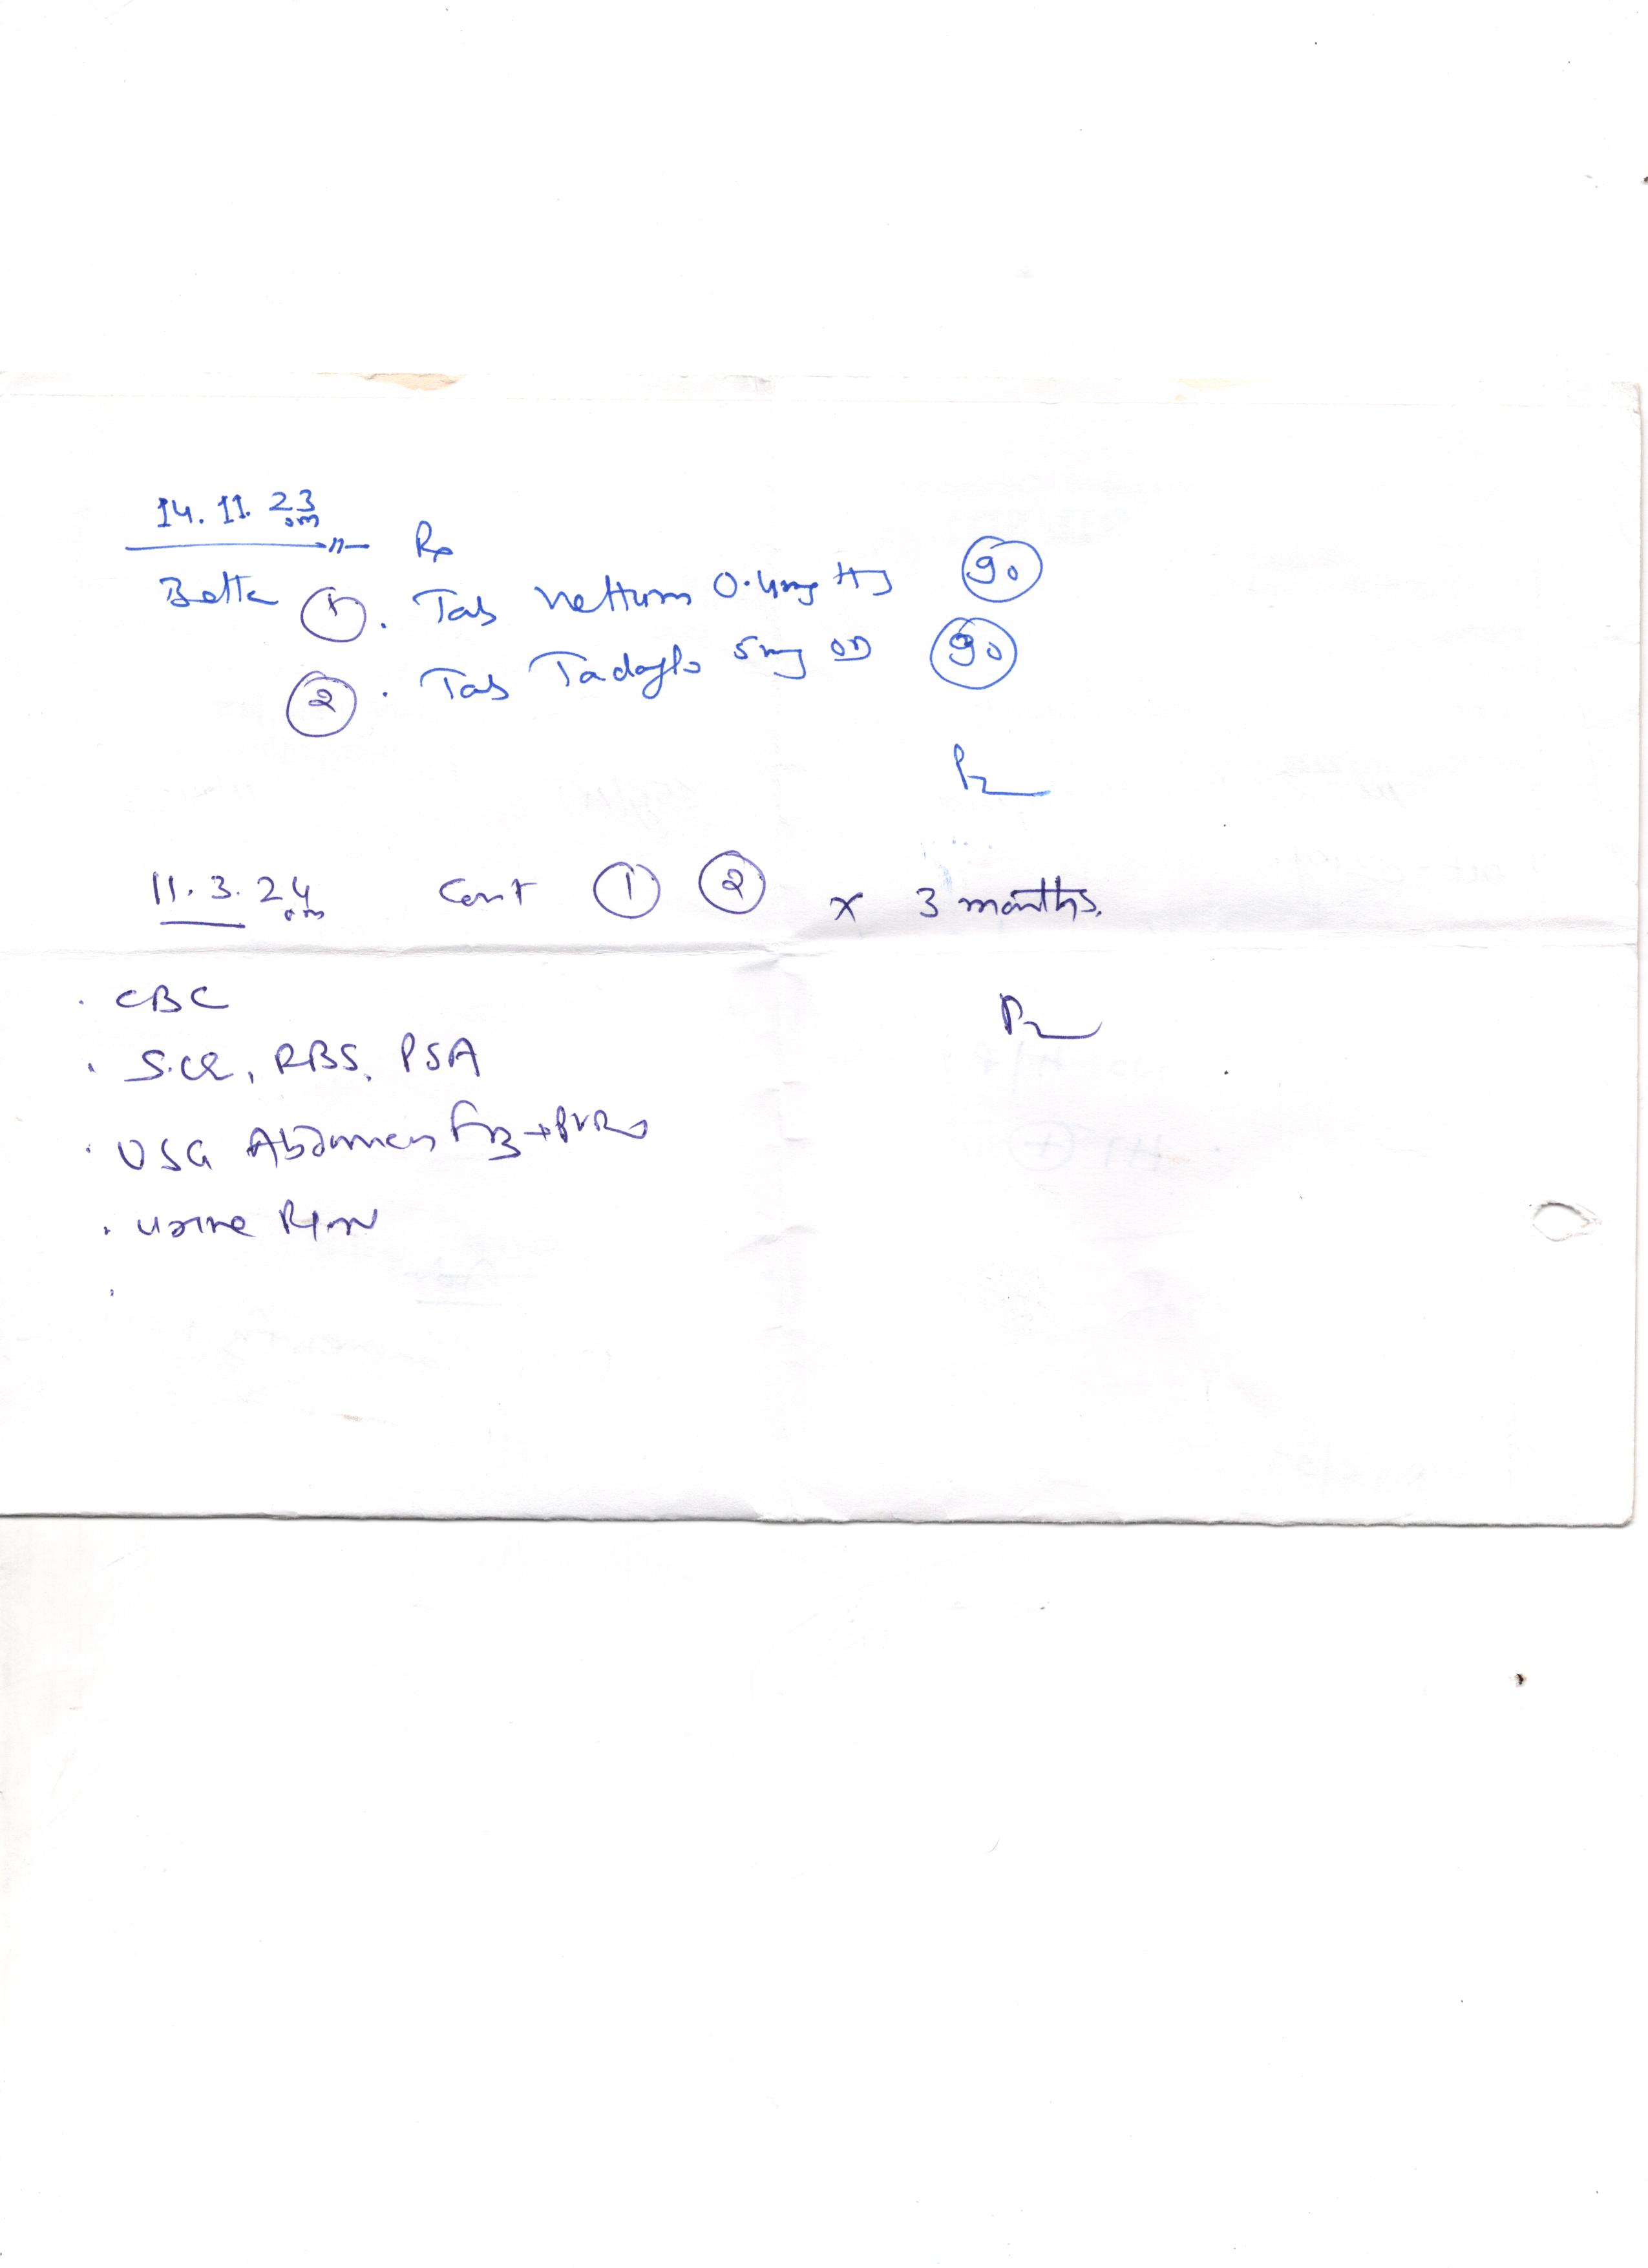 14.11.23
Rx
Better ① . Tab 0.4mg HS 90
② . Tab 5mg OD 90
11.3.24 Cont ① ② x 3 months.
. CBC
. S.Cr, RBS, PSA
. USG Abdomen + PVR
. Urine R/M